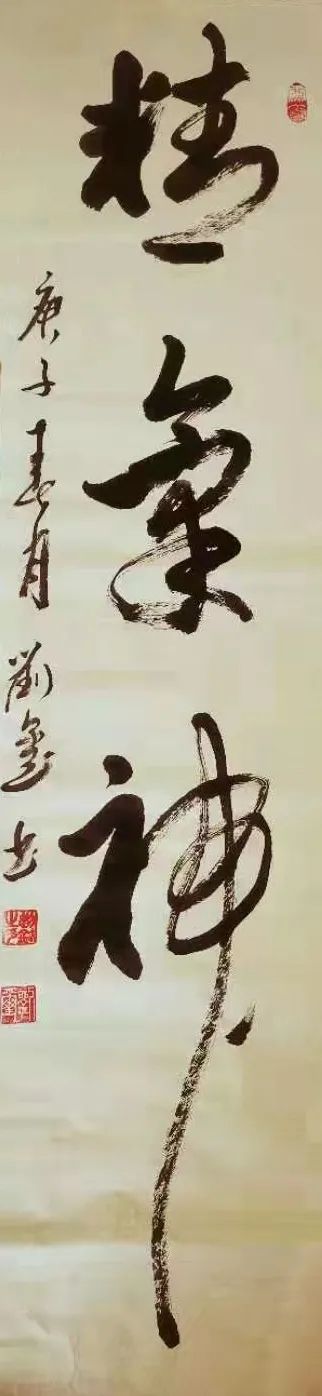 精氣神
庚子春月劉玺书